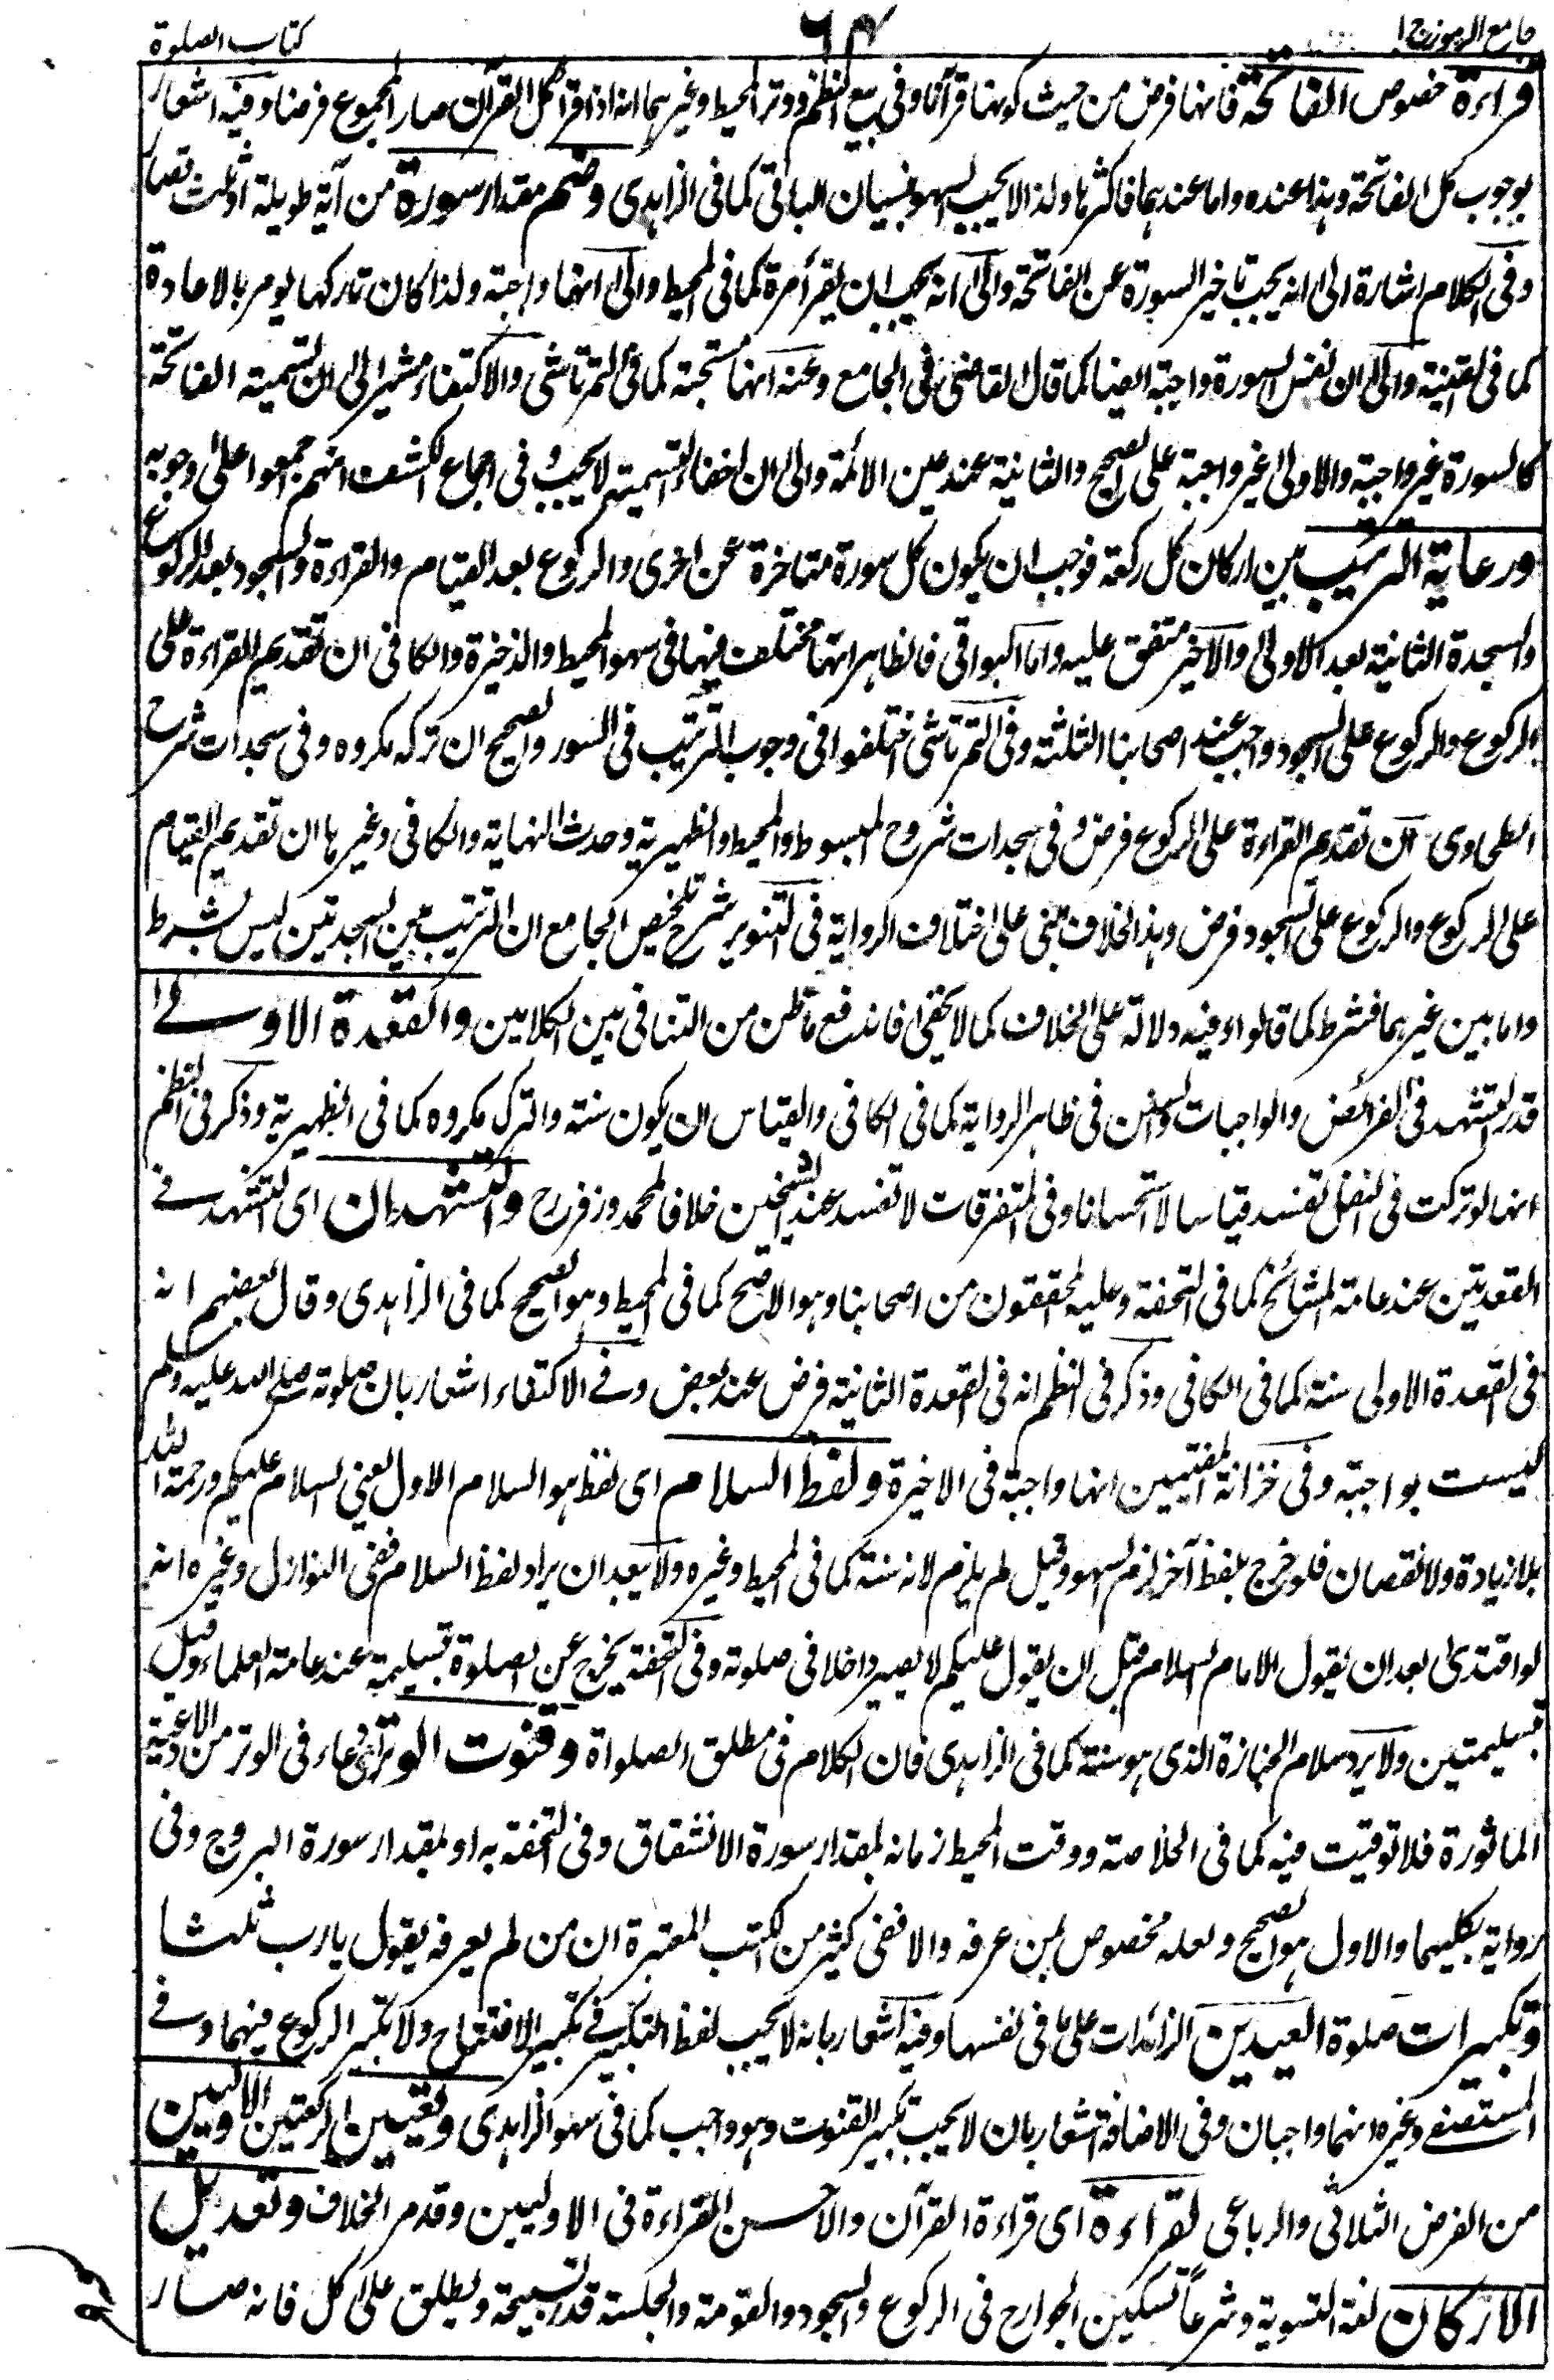 جامع الرموز ج ا
٦٢
كتاب الصلوة
قراءة خصوص الفاتحة فانها فرض من حيث كونها قرآنا وفي بيع النظم ووتر المحيط وغيرهما انه اذا قرأ كل القرآن صار المجموع فرضا وفيه اشعار
بوجوب كل الفاتحة وهذا عنده واما عندهما فاكثرها ولذا لا يجب السهو بنسيان الباقي كما في الزاهدي وضم مقدار سورة من آية طويلة او ثلث قصار
وفي الكلام اشارة الى انه يجب تاخير السورة عن الفاتحة والى انه يجب ان يقرأ مرة كما في المحيط والى انها واجبة ولذا كان تاركها يومر بالاعادة
كما في القنية والى ان نفس السورة واجبة ايضا كما قال القاضي في الجامع وعنه انها مستحبة كما في التمرتاشي والاكتفاء مشير الى ان تسمية الفاتحة
كالسورة غير واجبة والاولى غير واجبة على الصحيح والثانية عند عين الائمة والى ان اخفاء التسمية لا يجب وفي اجماع الكشف انهم اجمعوا على وجوبه
ورعاية الترتيب بين اركان كل ركعة فوجب ان يكون كل سورة متاخرة عن اخرى والركوع بعد القيام والقراءة والسجود بعد الركوع
والسجدة الثانية بعد الاولى والاخير متفق عليه واما البواقي فالظاهر انها مختلف فيها ففي سهو المحيط والذخيرة والكافي ان تقديم القراءة على
الركوع والركوع على السجود واجب عند اصحابنا الثلثة وفي التمرتاشي اختلفوا في وجوب الترتيب في السور والصحيح ان تركه مكروه وفي سجدات شرح
الطحاوي ان تقديم القراءة على الركوع فرض وفي سجدات شروح المبسوط والمحيط والظهيرية وحدث النهاية والكافي وغيرها ان تقديم القيام
على الركوع والركوع على السجود فرض وهذا الخلاف مبني على اختلاف الرواية في التنوير شرح تلخيص الجامع ان الترتيب بين السجدتين ليس بشرط
واما بين غيرهما فشرط كما قالوا وفيه دلالة على الخلاف كما لا يخفى فاندفع ما ظن من التنافي بين الكلامين والقعدة الاولى
قدر التشهد في الفرائض والواجبات والسنن في ظاهر الرواية كما في الكافي والقياس ان يكون سنة والترك مكروه كما في الظهيرية وذكر في النظم
انها لو تركت في النفل تفسد قياسا لا استحسانا وفي المتفرقات لا تفسد عند الشيخين خلافا لمحمد وزفر رح والتشهدان اي التشهد في
القعدتين عند عامة المشائخ كما في التحفة وعليه المحققون من اصحابنا وهو الاصح كما في المحيط وهو الصحيح كما في الزاهدي وقال بعضهم انه
في القعدة الاولى سنة كما في الكافي وذكر في النظم انه في القعدة الثانية فرض عند بعض وفي الاكتفاء اشعار بان صلوته صلى الله عليه وسلم
ليست بواجبة وفي خزانة المفتيين انها واجبة في الاخيرة ولفظ السلام اي لفظ هو السلام الاول يعني السلام عليكم ورحمة الله
بلا زيادة ولا نقصان فلو خرج بلفظ آخر لزم السهو وقيل لم يلزم لانه سنة كما في المحيط وغيره ولا يبعد ان يراد لفظ السلام ففي النوازل وغيره انه
لو اقتدى بعد ان يقول الامام السلام قبل ان يقول عليكم لا يصير داخلا في صلوته وفي التحفة يخرج عن الصلوة بتسليمة عند عامة العلماء وقيل
بتسليمتين ولا يرد سلام الجنازة الذي هو سنة كما في الزاهدي فان الكلام في مطلق الصلواة وقنوت الوتر اي دعاء في الوتر من الادعية
الماثورة فلا توقيت فيه كما في الخلاصة ووقت المحيط زمانه بمقدار سورة الانشقاق وفي التحفة به او بمقدار سورة البروج وفي
رواية بكليهما والاول هو الصحيح ولعله مخصوص لمن عرفه والا ففي كثير من الكتب المعتبرة ان من لم يعرفه يقول يا رب ثلثا
وتكبيرات صلوة العيدين الزائدات على ما في نفسها وفيه اشعار بانه لا يجب لفظ التكبير في تكبير الافتتاح ولا تكبير الركوع فيهما وفي
المستصفى وغيره انهما واجبان وفي الاضافة اشعار بان لا يجب تكبير القنوت وهو واجب كما في سهو الزاهدي وتعيين الركعتين الاوليين
من الفرض الثلاثي والرباعي لقراءة اي قراءة القرآن والاحسن القراءة في الاوليين وقدم الخلاف وتعديل
الاركان لغة التسوية وشرعاً تسكين الجوارح في الركوع والسجود والقومة والجلسة قدر تسبيحة ويطلق على كل فانه صار